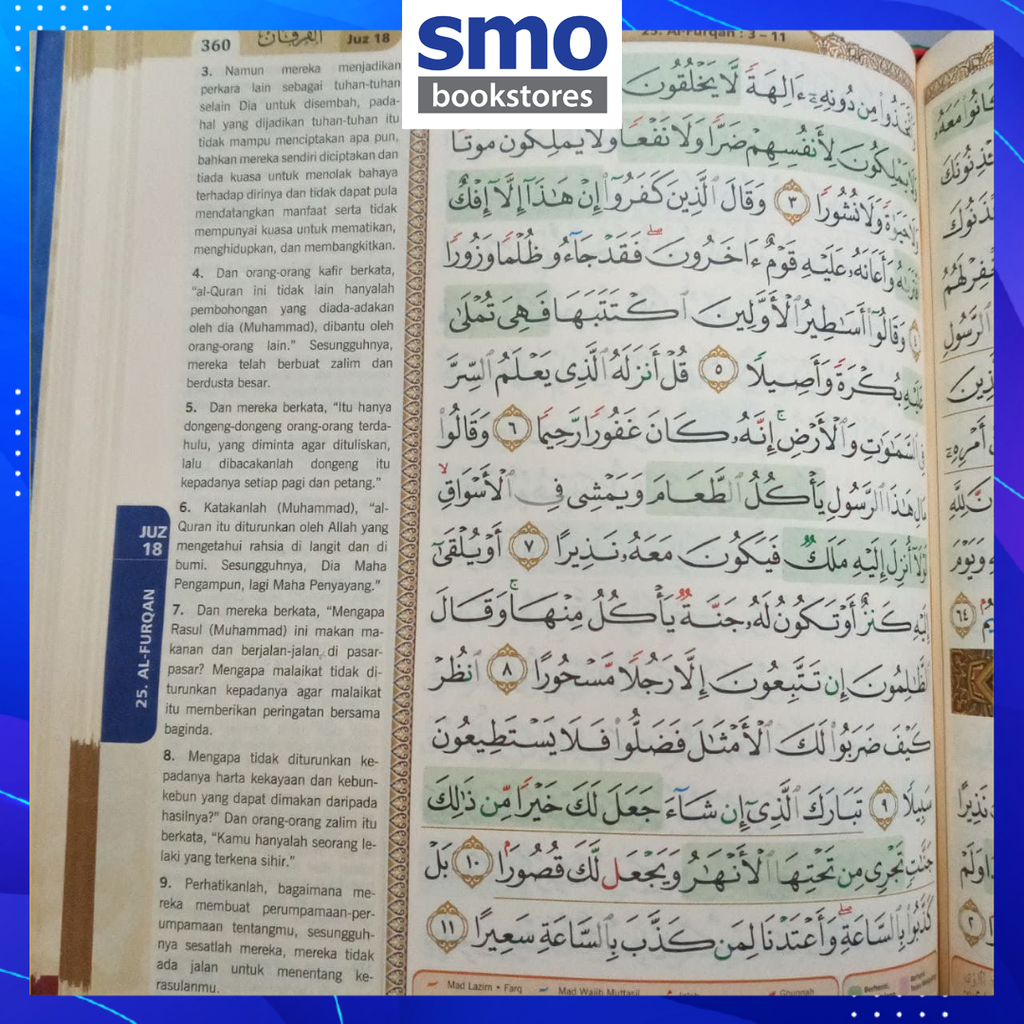 smo
bookstores
360
الفرقان
Juz 18
25. Al-Furqan : 3 – 11
3. Namun mereka menjadikan
perkara lain sebagai tuhan-tuhan
selain Dia untuk disembah, pada-
hal yang dijadikan tuhan-tuhan itu
tidak mampu menciptakan apa pun,
bahkan mereka sendiri diciptakan dan
tiada kuasa untuk menolak bahaya
terhadap dirinya dan tidak dapat pula
mendatangkan manfaat serta tidak
mempunyai kuasa untuk mematikan,
menghidupkan, dan membangkitkan.
4. Dan orang-orang kafir berkata,
"al-Quran ini tidak lain hanyalah
pembohongan yang diada-adakan
oleh dia (Muhammad), dibantu oleh
orang-orang lain." Sesungguhnya,
mereka telah berbuat zalim dan
berdusta besar.
5. Dan mereka berkata, "Itu hanya
dongeng-dongeng orang-orang terda-
hulu, yang diminta agar dituliskan,
lalu dibacakanlah dongeng itu
kepadanya setiap pagi dan petang."
6. Katakanlah (Muhammad), "al-
Quran itu diturunkan oleh Allah yang
mengetahui rahsia di langit dan di
bumi. Sesungguhnya, Dia Maha
Pengampun, lagi Maha Penyayang."
7. Dan mereka berkata, "Mengapa
Rasul (Muhammad) ini makan ma-
kanan dan berjalan-jalan di pasar-
pasar? Mengapa malaikat tidak di-
turunkan kepadanya agar malaikat
itu memberikan peringatan bersama
baginda.
8. Mengapa tidak diturunkan ke-
padanya harta kekayaan dan kebun-
kebun yang dapat dimakan daripada
hasilnya?" Dan orang-orang zalim itu
berkata, "Kamu hanyalah seorang le-
laki yang terkena sihir."
9. Perhatikanlah, bagaimana me-
reka membuat perumpamaan-per-
umpamaan tentangmu, sesunguh-
nya sesatlah mereka, mereka tidak
ada jalan untuk menentang ke-
rasulanmu.
JUZ
18
25. AL-FURQAN
مِن دُونِهِۦٓ ءَالِهَةً لَّا يَخْلُقُونَ
يَمْلِكُونَ لِأَنفُسِهِمْ ضَرًّا وَلَا نَفْعًا وَلَا يَمْلِكُونَ مَوْتًا
وَلَا نُشُورًا ٣ وَقَالَ ٱلَّذِينَ كَفَرُوٓا۟ إِنْ هَٰذَآ إِلَّآ إِفْكٌ
وَأَعَانَهُۥ عَلَيْهِ قَوْمٌ ءَاخَرُونَ ۖ فَقَدْ جَآءُو ظُلْمًا وَزُورًا
٤ وَقَالُوٓا۟ أَسَٰطِيرُ ٱلْأَوَّلِينَ ٱكْتَتَبَهَا فَهِىَ تُمْلَىٰ
عَلَيْهِ بُكْرَةً وَأَصِيلًا ٥ قُلْ أَنزَلَهُ ٱلَّذِى يَعْلَمُ ٱلسِّرَّ
فِى ٱلسَّمَٰوَٰتِ وَٱلْأَرْضِ ۚ إِنَّهُۥ كَانَ غَفُورًا رَّحِيمًا ٦ وَقَالُوا۟
مَالِ هَٰذَا ٱلرَّسُولِ يَأْكُلُ ٱلطَّعَامَ وَيَمْشِى فِى ٱلْأَسْوَاقِ ۙ
لَوْلَآ أُنزِلَ إِلَيْهِ مَلَكٌ فَيَكُونَ مَعَهُۥ نَذِيرًا ٧ أَوْ يُلْقَىٰٓ
إِلَيْهِ كَنزٌ أَوْ تَكُونُ لَهُۥ جَنَّةٌ يَأْكُلُ مِنْهَا ۚ وَقَالَ
ٱلظَّٰلِمُونَ إِن تَتَّبِعُونَ إِلَّا رَجُلًا مَّسْحُورًا ٨ ٱنظُرْ
كَيْفَ ضَرَبُوا۟ لَكَ ٱلْأَمْثَٰلَ فَضَلُّوا۟ فَلَا يَسْتَطِيعُونَ
سَبِيلًا ٩ تَبَارَكَ ٱلَّذِىٓ إِن شَآءَ جَعَلَ لَكَ خَيْرًا مِّن ذَٰلِكَ
جَنَّٰتٍ تَجْرِى مِن تَحْتِهَا ٱلْأَنْهَٰرُ وَيَجْعَل لَّكَ قُصُورًا ١٠ بَلْ
كَذَّبُوا۟ بِٱلسَّاعَةِ ۖ وَأَعْتَدْنَا لِمَن كَذَّبَ بِٱلسَّاعَةِ سَعِيرًا ١١
Mad Lazim • Farq
Mad Wajib Muttasil
Ghunnah